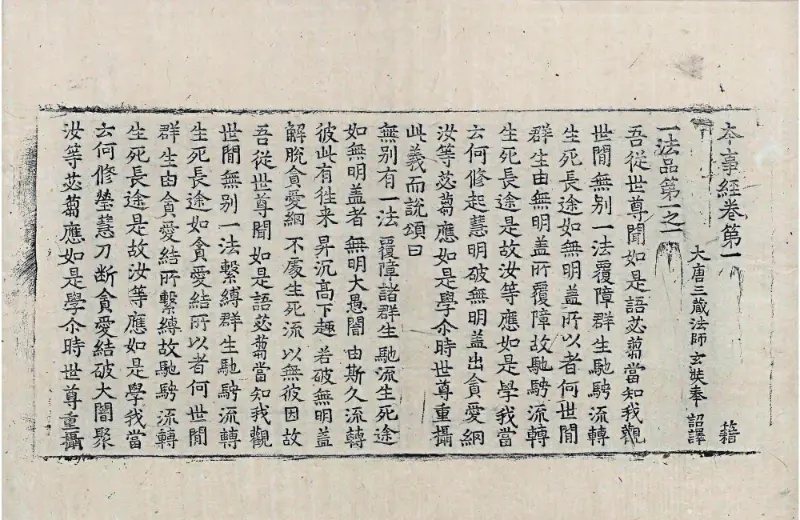 夲事經卷第一 籍
大唐三蔵法師玄奘奉 詔譯
一法品第一之一
吾從世尊聞如是語苾蒭當知我觀
世閒無別一法覆障群生馳騁流轉
生死長途如無明盖所以者何世閒
群生由無明盖所覆障故馳騁流轉
生死長途是故汝等應如是學我當
云何修起慧明破無明盖出貪愛網
汝等苾蒭應如是學尒時世尊重攝
此義而說頌曰
無別有一法 覆障諸群生 馳流生死途
如無明盖者 無明大愚闇 由斯久流轉
彼此有往来 昇沉高下趣 若破無明盖
解脫貪愛網 不處生死流 以無彼因故
吾從世尊聞如是語苾蒭當知我觀
世閒無別一法繫縛群生馳騁流轉
生死長途如貪愛結所以者何世閒
群生由貪愛結所繫縛故馳騁流轉
生死長途是故汝等應如是學我當
云何修瑩慧刀断貪愛結破大闇聚
汝等苾蒭應如是學尒時世尊重攝